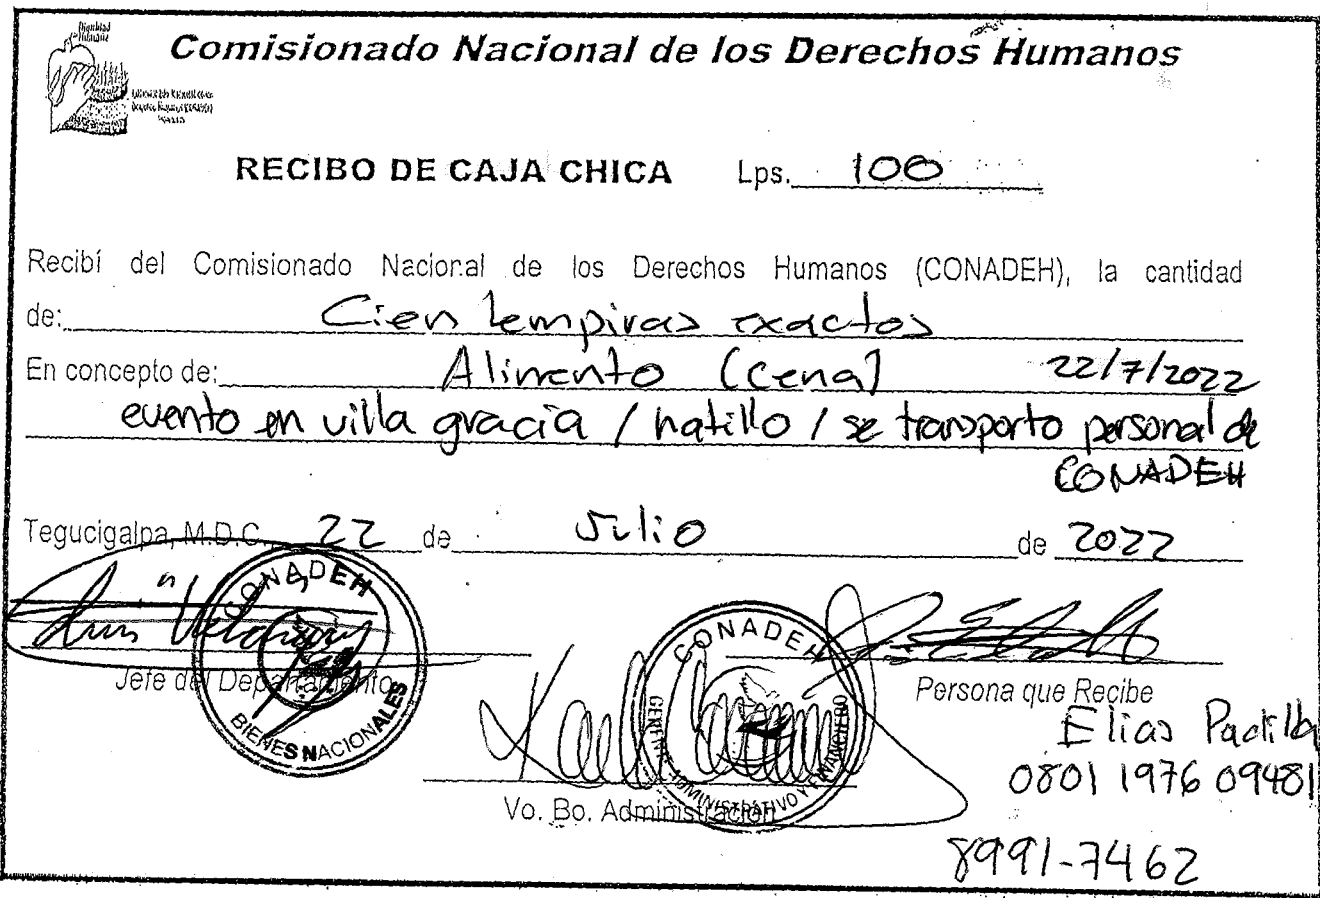 Dignidad
Humana
Comisionado Nacional de los Derechos Humanos
RECIBO DE CAJA CHICA Lps. 100
Recibí del Comisionado Nacional de los Derechos Humanos (CONADEH), la cantidad
de: Cien lempiras exactos
En concepto de: Alimento (cena) 22/7/2022
evento en villa gracia / hatillo / se transporto personal de
CONADEH
Tegucigalpa, M.D.C. 22 de Julio de 2022
CONADEH
BIENES NACIONALES
Jefe del Departamento
CONADEH
ADMINISTRATIVO Y FINANCIERO
Persona que Recibe
Elias Padilla
0801 1976 09481
Vo. Bo. Administración
8991-7462